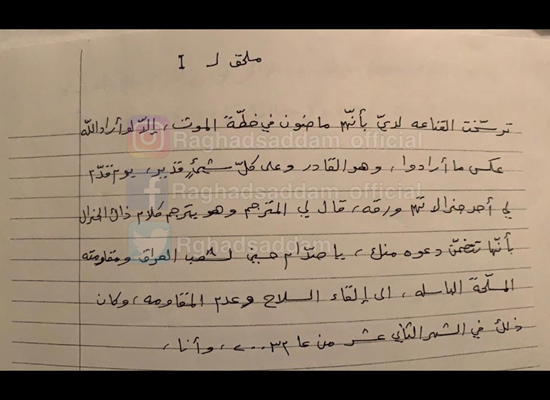 ملحق لـ I
ترسّخت القناعه لديّ بأنّهم ماضون في خطّة الموت، إلاّ لو أراد الله
عكس ما أرادوا، وهو القادر وعلى كلّ شيءٍ قدير، يوم قدّم
لي أحد جنرالاتهم ورقه، قال لي المترجم وهو يترجم كلام ذاك الجنرال
بأنّها تتضمّن دعوه منك، يا صدّام حسين لشعب العراق ومقاومته
المسلّحة الباسله، الى إلقاء السلاح وعدم المقاومه، وكان
ذلك في الشهر الثاني عشر من عام ٢٠٠٣، وأنا،
Raghadsaddam_official
Raghadsaddam_official
Rghadsaddam